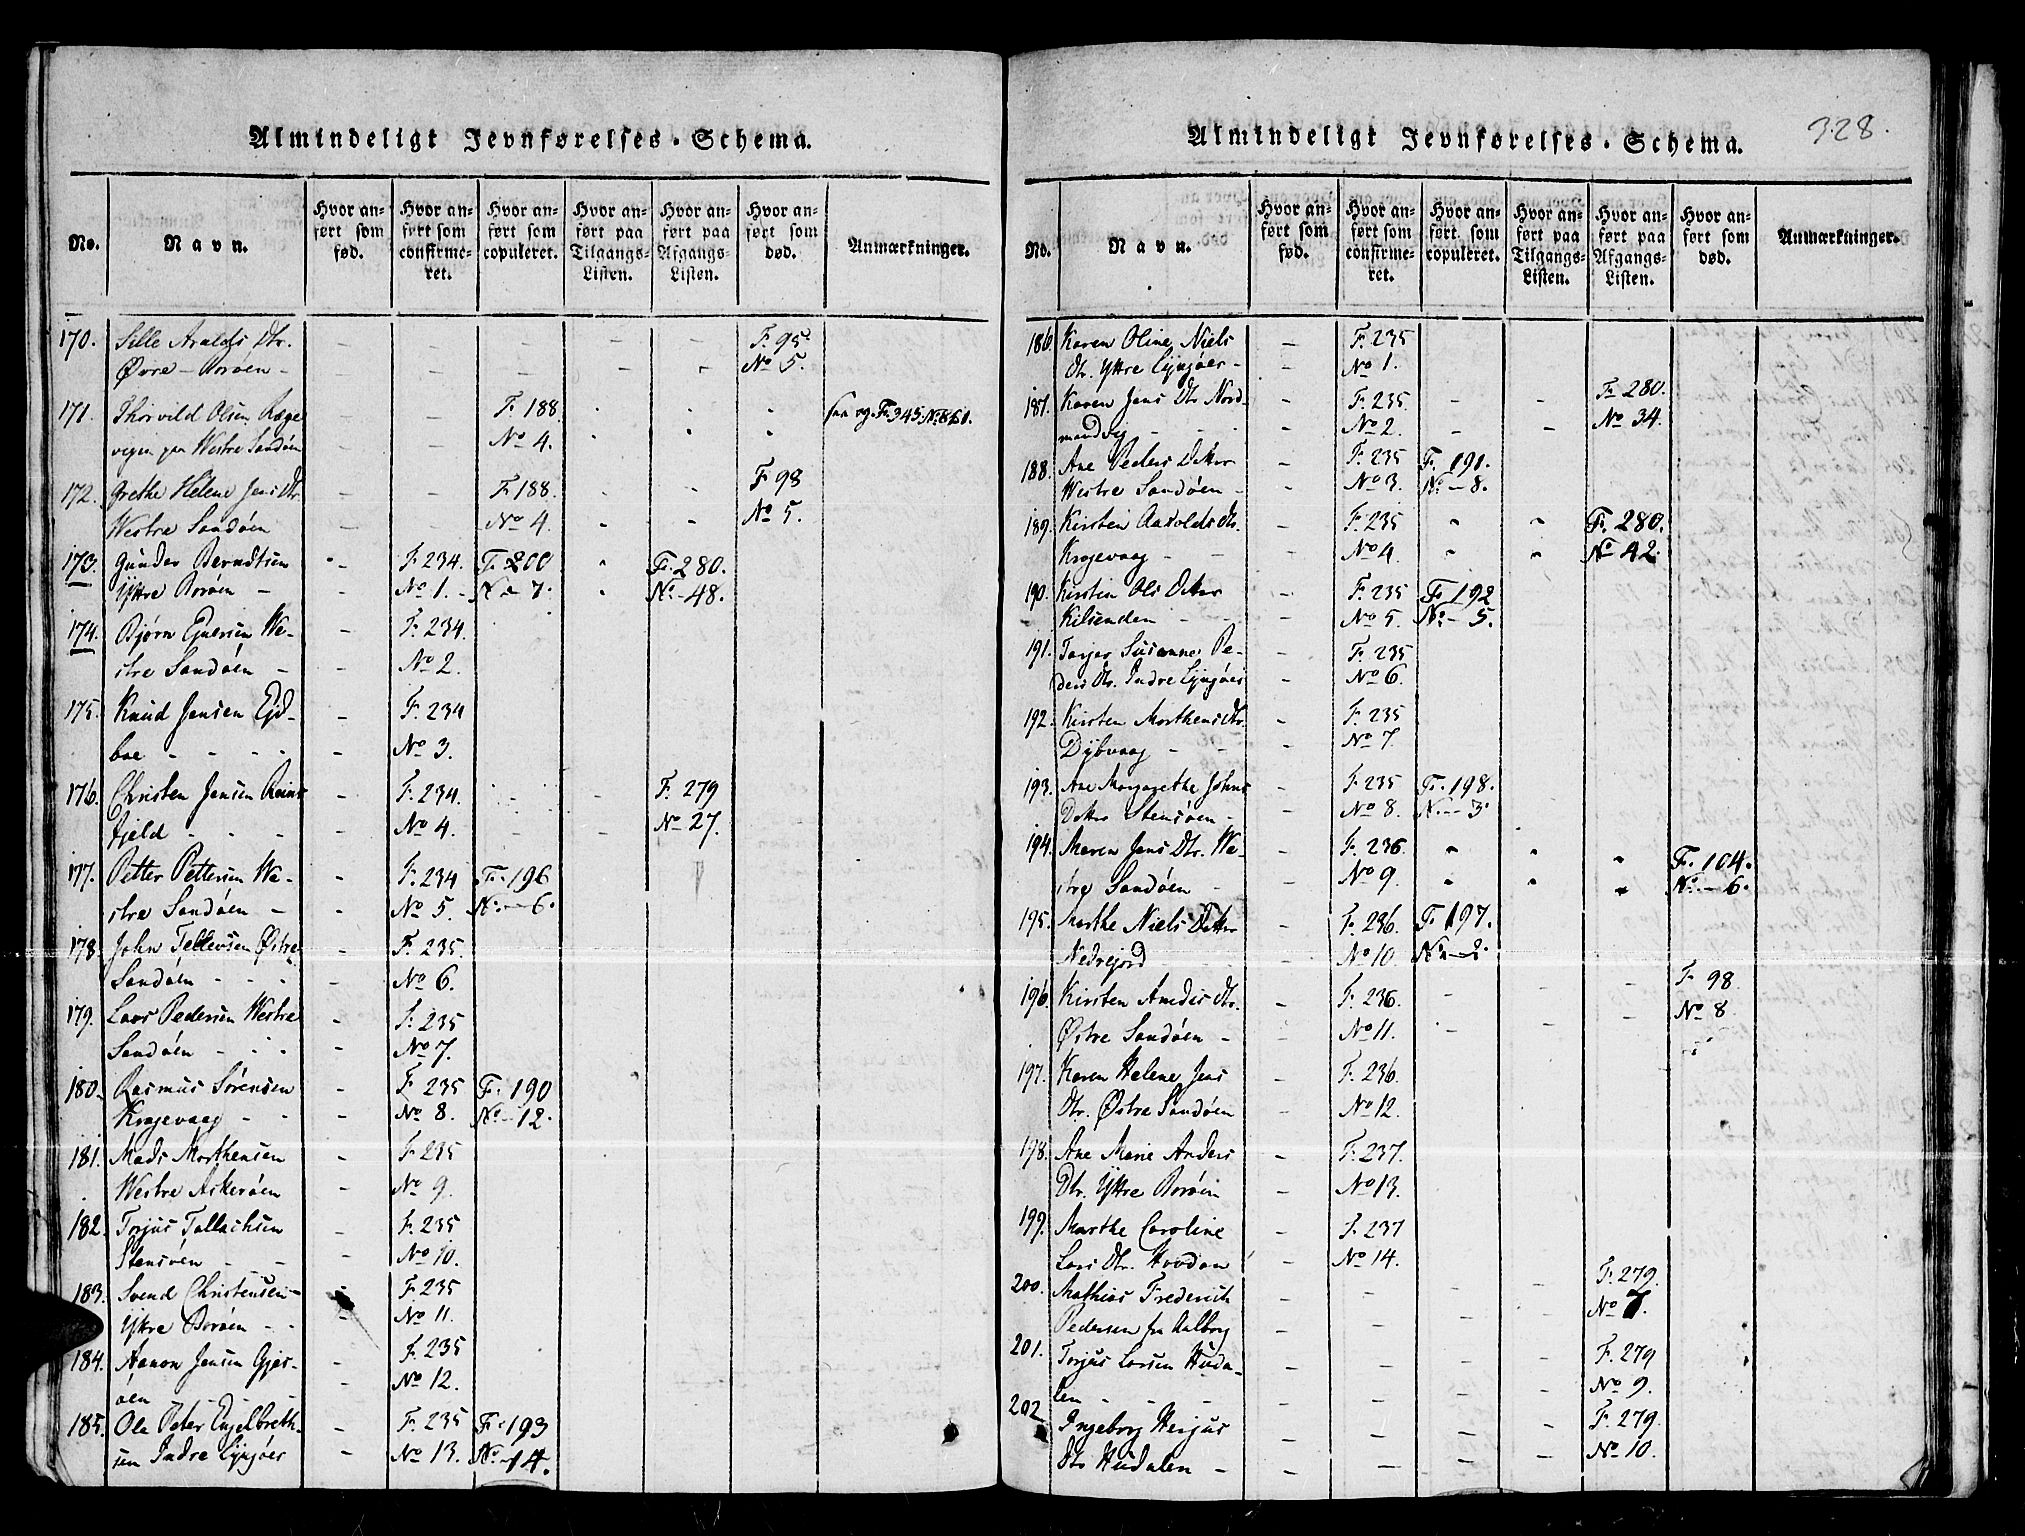 Almindeligt Jevnførelses-Schema.
No.
Navn.
Hvor anført som fød.
Hvor anført som confirmeret.
Hvor anført som copuleret.
Hvor anført paa Tilgangs-Listen.
Hvor anført paa Afgangs-Listen.
Hvor anført som død.
Anmærkninger.
170. Sille Aralds Dtr. — — — — — F. 95.
Øvre — Borøen — — — — — — No 5.
171. Thorvild Olsen Ræge — — F. 188. " " " F. 345. No 561.
vigen paa Westre Sandøen — — No 4. " " "
172. Grethe Helene Jens Dtr. — — F. 188. F. 98
Westre Sandøen — — No 4. No 5.
173. Gunder Berndtsen — F. 234. F. 200 " F. 280.
Yttre Borøen — — No 1. — No — 7. " No — 48.
174. Bjørn Ejversen We- — F. 234.
stre Sandøen — — No 2.
175. Knud Jensen Ejd- — F. 234
boe — — — No 3.
176. Christen Jensen Reins — F. 234. F. 279
fjeld — — — No 4. No 27.
177. Petter Pettersen We- — F. 234 F. 196
stre Sandøen — — No 5. No — 6.
178. John Tellevsen Østre — F. 235.
Sandøen — — — No 6.
179. Lars Pedersen Westre — F. 235
Sandøen — — — No 7.
180. Rasmus Sørensen — F. 235 F. 190
Krogevaag — — — No 8. No — 12.
181. Mads Morthensen — F. 235
Westre Askerøen — No 9.
182. Torjus Tallachsen — F. 235
Stensøen — — — No 10.
183. Svend Christensen — — F. 235
Yttre Borøen — — — No 11.
184. Aanon Jensen Gjes- — F. 235
øen — — No 12.
185. Ole Peter Engelbreth- — F. 235 F. 193
sen Indre Lyngøer — No 13. No — 14.
Almindeligt Jevnførelses-Schema.
328.
No.
Navn.
Hvor anført som fød.
Hvor anført som confirmeret.
Hvor anført som copuleret.
Hvor anført paa Tilgangs-Listen.
Hvor anført paa Afgangs-Listen.
Hvor anført som død.
Anmærkninger.
186. Karen Oline Niels — F. 235
Dtr. Yttre Lyngøer — — No 1.
187. Karen Jens Dtr. Nord- — F. 235. — — F. 280.
mandvig — — — No 2. — — No 34.
188. Ane Peders Datter — F. 235 F. 191.
Westre Sandøen — — No 3. No — 8.
189. Kirsten Aarolds Dtr. — F. 235 " " F. 280.
Krogevaag — — — No 4. " " No 42.
190. Kirstin Ols Datter — F. 235 F. 192
Kilsenden — — — No 5. No — 5.
191. Torjer Susanne Pe- — F. 235
ders Dtr. Indre Lyngøer — No 6.
192. Kirsten Morthens Dtr. — F. 235
Dybvaag — — — No 7.
193. Ane Margarethe Johns — F. 235 F. 198.
Datter Stensøen — — No 8. No — 3.
194. Maren Jens Dtr. We- — F. 236. " " " F. 104.
stre Sandøen — — No 9. " " " No — 6.
195. Marthe Niels Datter — F. 236. F. 197.
Nedrejord — — — No 10. No — 2.
196. Kirsten Anders Dtr. — F. 236. — — — F. 98
Østre Sandøen — — No 11. — — — No 8.
197. Karen Helene Jens — F. 236.
Dtr. Østre Sandøen — No 12.
198. Ane Marie Anders — F. 237.
Dtr. Yttre Borøen — No 13.
199. Marthe Caroline — F. 237
Lars Dtr. Hovdan — No 14.
200. Mathias Frederich — — — — F. 279.
Pedersen fra Aalborg — — — — No 7.
201. Torjus Larsen Huda- — — — — F. 279
len — — — — — — — No 9.
202. Ingeborg Herjus — — — — F. 279.
Dtr. Hudalen — — — — — No 10.